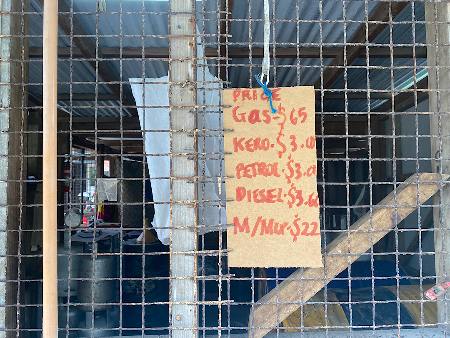 PRICE
Gas-$65
KERO-$3.
PETROL-$3.
DIESEL-$3.
M/Mur-$22